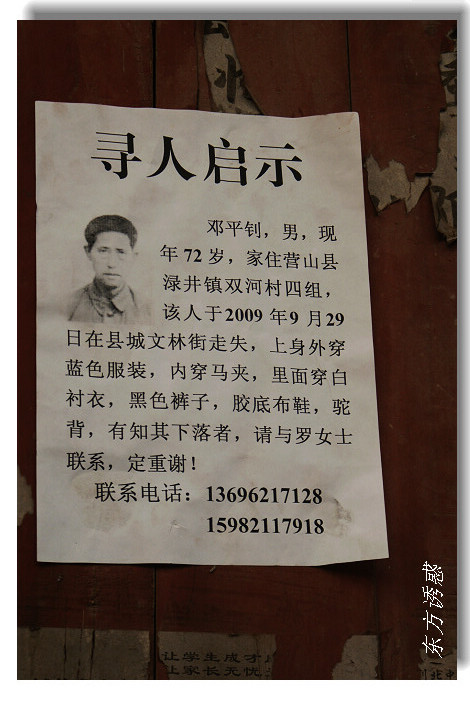 寻人启示
邓平钊，男，现
年 72 岁，家住营山县
渌井镇双河村四组，
该人于2009 年9 月29
日在县城文林街走失，上身外穿
蓝色服装，内穿马夹，里面穿白
衬衣，黑色裤子，胶底布鞋，驼
背，有知其下落者，请与罗女士
联系，定重谢！
联系电话：13696217128
15982117918
让学生成才
让家长无忧
东方诱惑